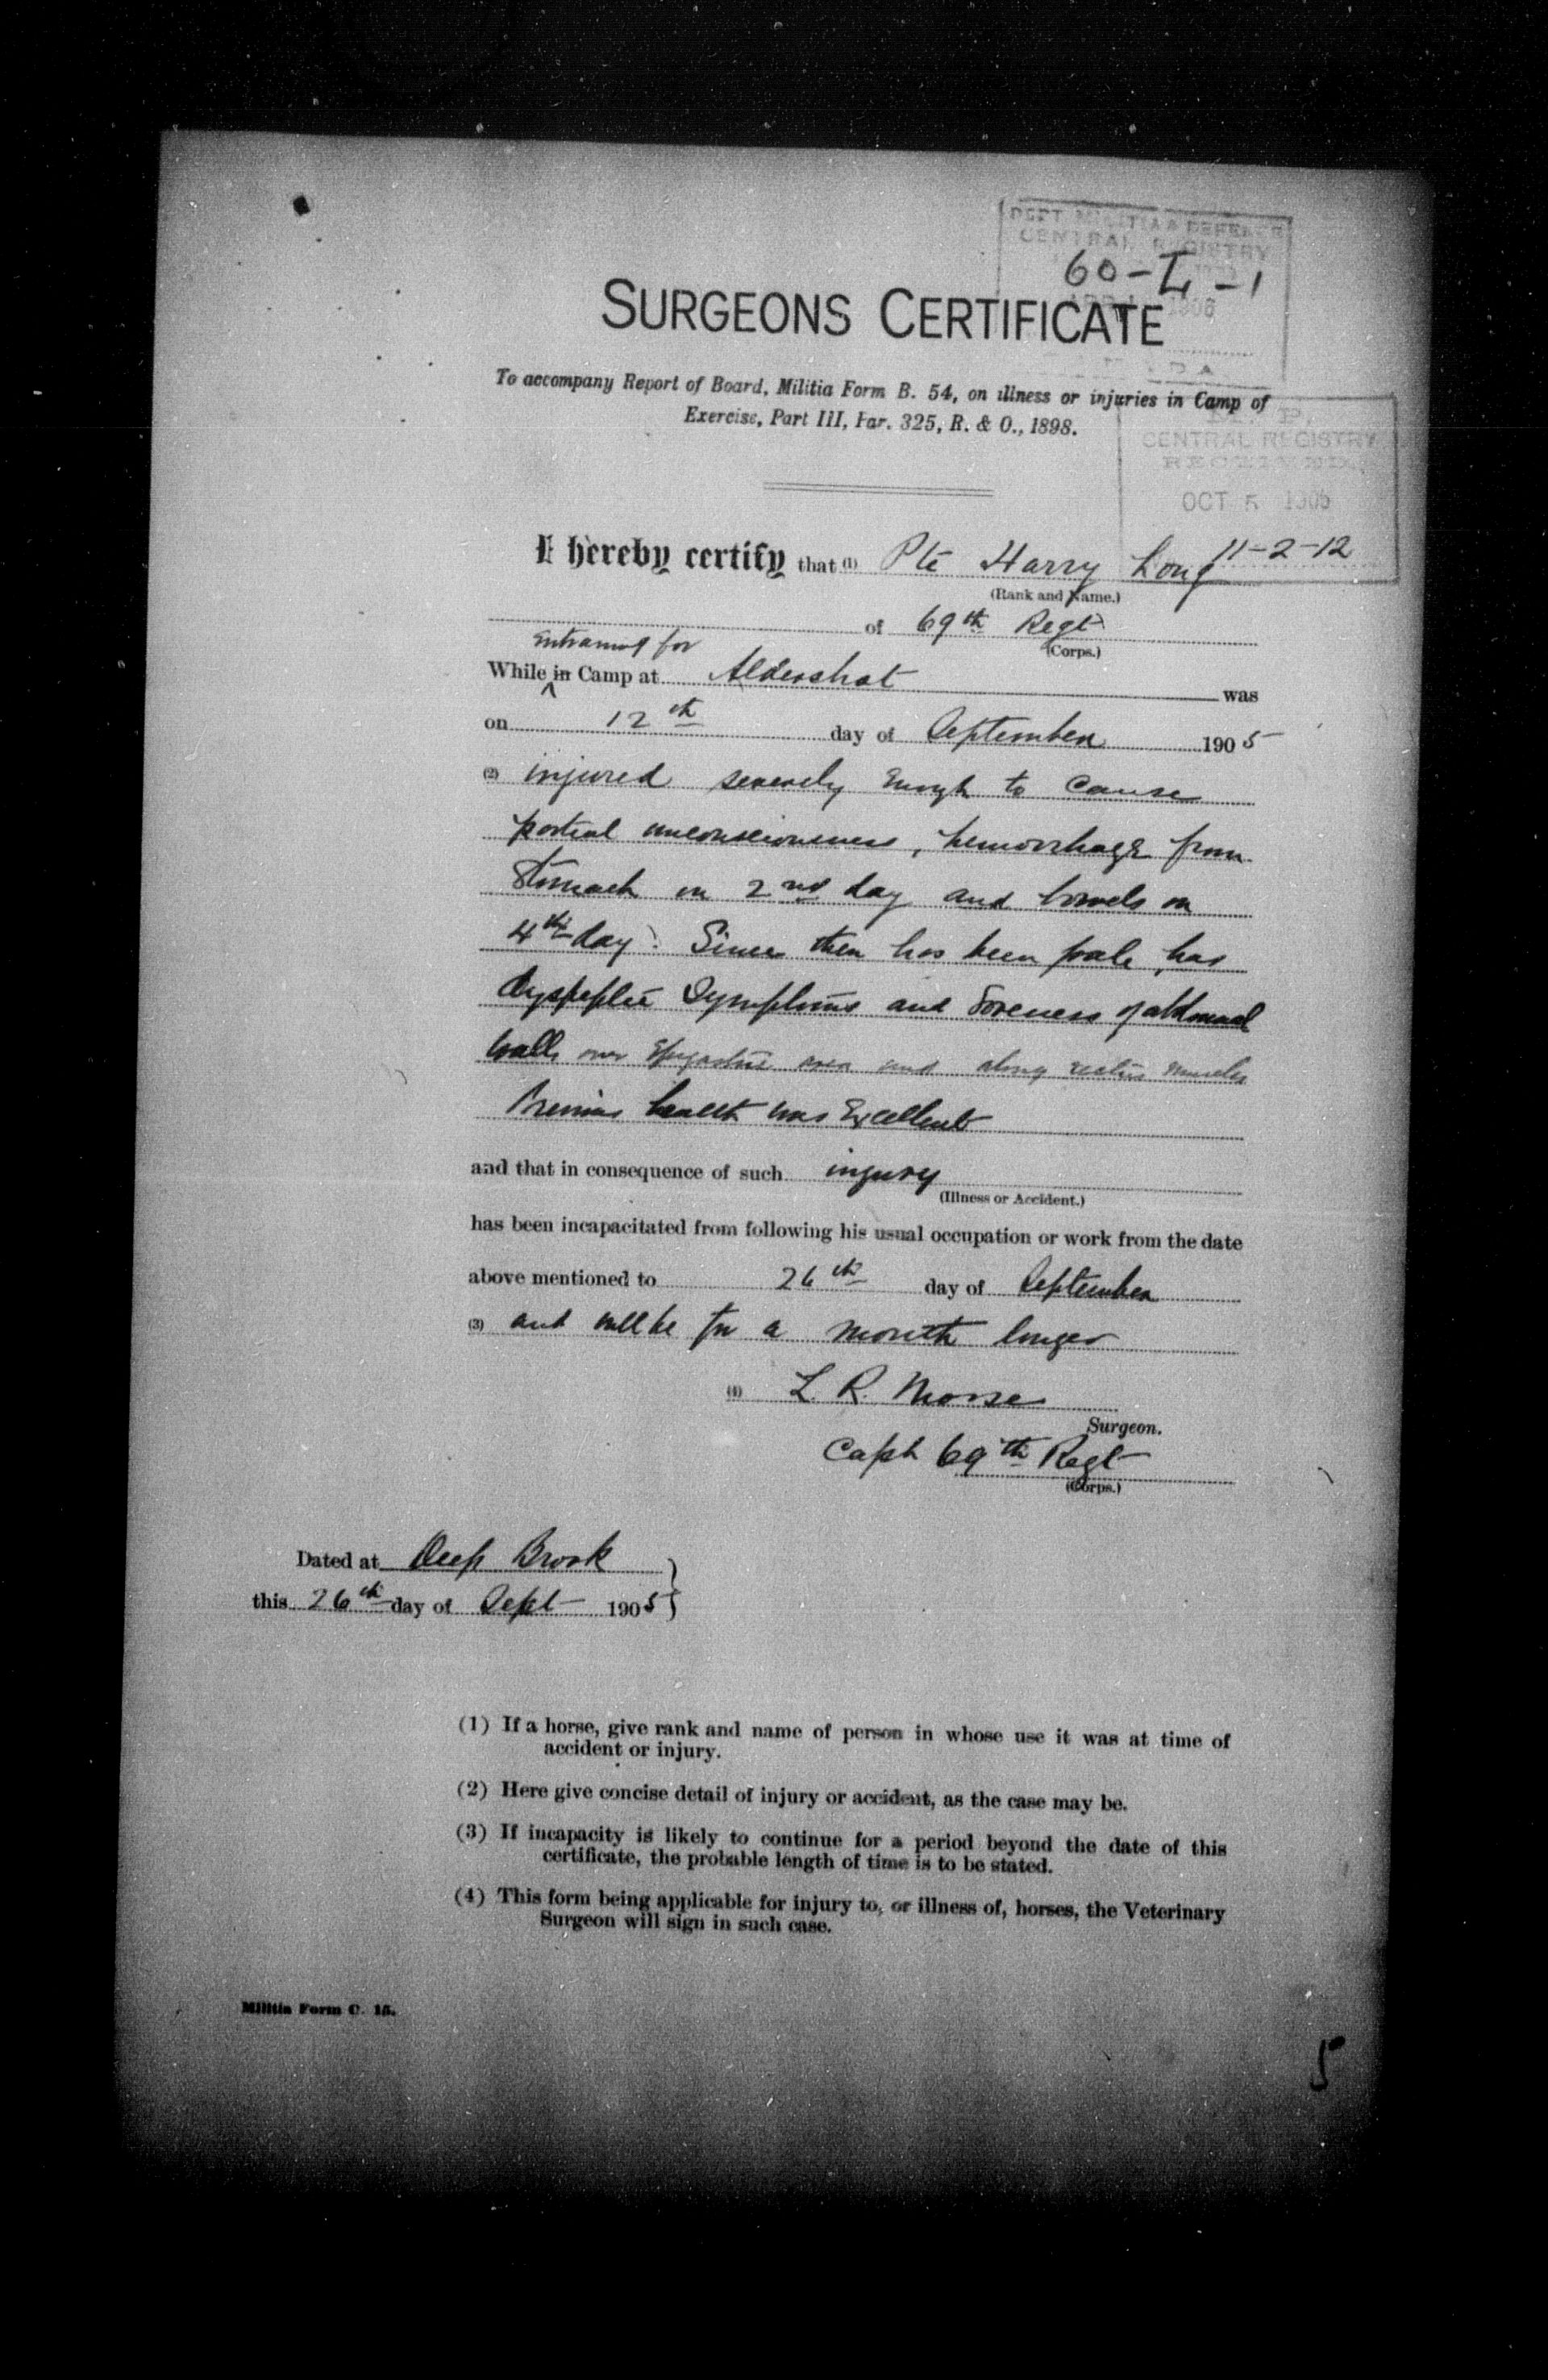 DEPT. MILITIA & DEFENCE
CENTRAL REGISTRY
60-L-1
1906
SURGEONS CERTIFICATE
To accompany Report of Board, Militia Form B. 54, on illness or injuries in Camp of
Exercise, Part III, Par. 325, R. & O., 1898.
CENTRAL REGISTRY
RECEIVED
OCT 5 1905
11-2-12
I hereby certify that (1) Pte Harry Long
(Rank and Name.)
of 69th Regt
(Corps.)
Entraining for
While in Camp at Aldershot was
on 12th day of September 1905
(2) injured severely enough to cause
partial unconsciousness, hemorrhage from
stomach on 2nd day and bowels on
4th day. Since then has been pale, has
dyspeptic symptoms and soreness of abdominal
walls over epigastric area and along rectus muscles
Previous health was Excellent
and that in consequence of such injury
(Illness or Accident.)
has been incapacitated from following his usual occupation or work from the date
above mentioned to 26th day of September
(3) and will be for a month longer
(4) L. R. Morse
Surgeon.
Capt 69th Regt
(Corps.)
Dated at Deep Brook
this 26th day of Sept 1905
(1) If a horse, give rank and name of person in whose use it was at time of
accident or injury.
(2) Here give concise detail of injury or accident, as the case may be.
(3) If incapacity is likely to continue for a period beyond the date of this
certificate, the probable length of time is to be stated.
(4) This form being applicable for injury to, or illness of, horses, the Veterinary
Surgeon will sign in such case.
Militia Form C. 15.
5